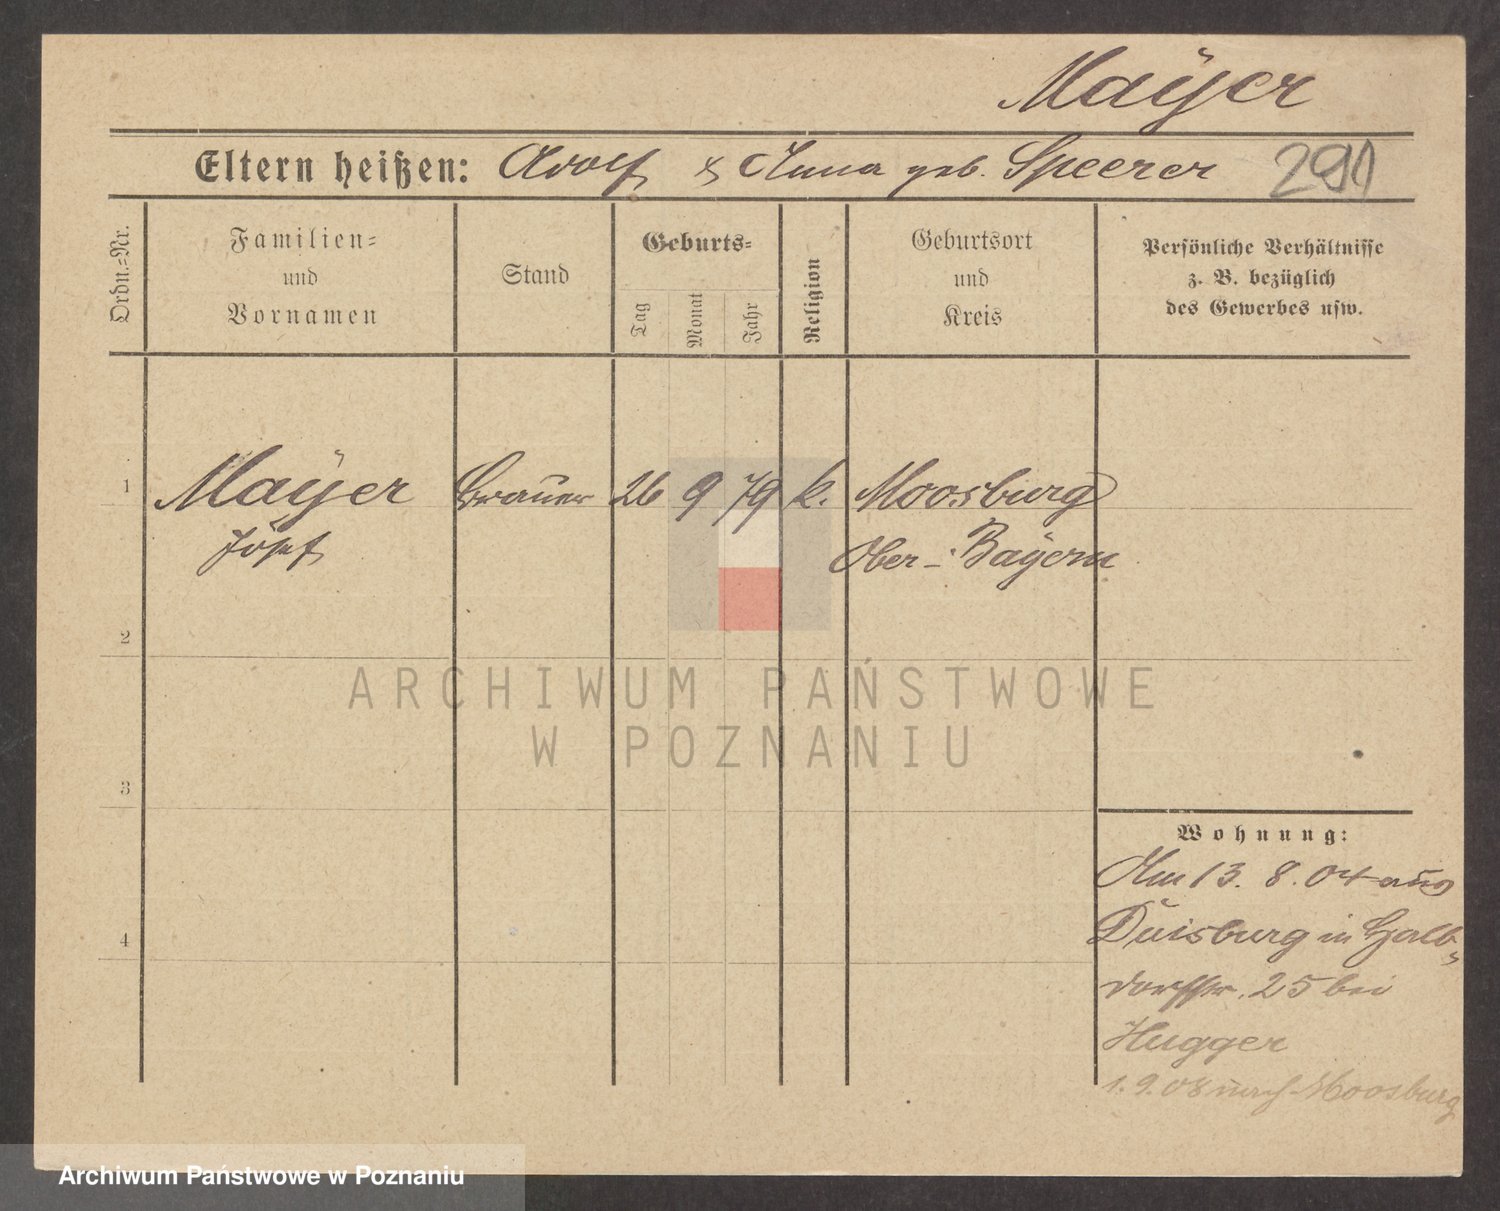 Mayer
Eltern heißen: Adolf & Anna geb. Speerer 291
Ordn.-Nr.
Familien-
und
Vornamen
Stand
Geburts-
Tag
Monat
Jahr
Religion
Geburtsort
und
Kreis
Persönliche Verhältnisse
z. B. bezüglich
des Gewerbes usw.
1 Maÿer Brauer 26 9 79 k. Moosburg
Josef Ober-Bayern
2
ARCHIWUM PAŃSTWOWE
W POZNANIU
3
Wohnung:
Am 13. 8. 04 aus
4 Duisburg in Halb-
dorfstr. 25 bei
Hugger
1. 9. 08 nach Moosburg
Archiwum Państwowe w Poznaniu